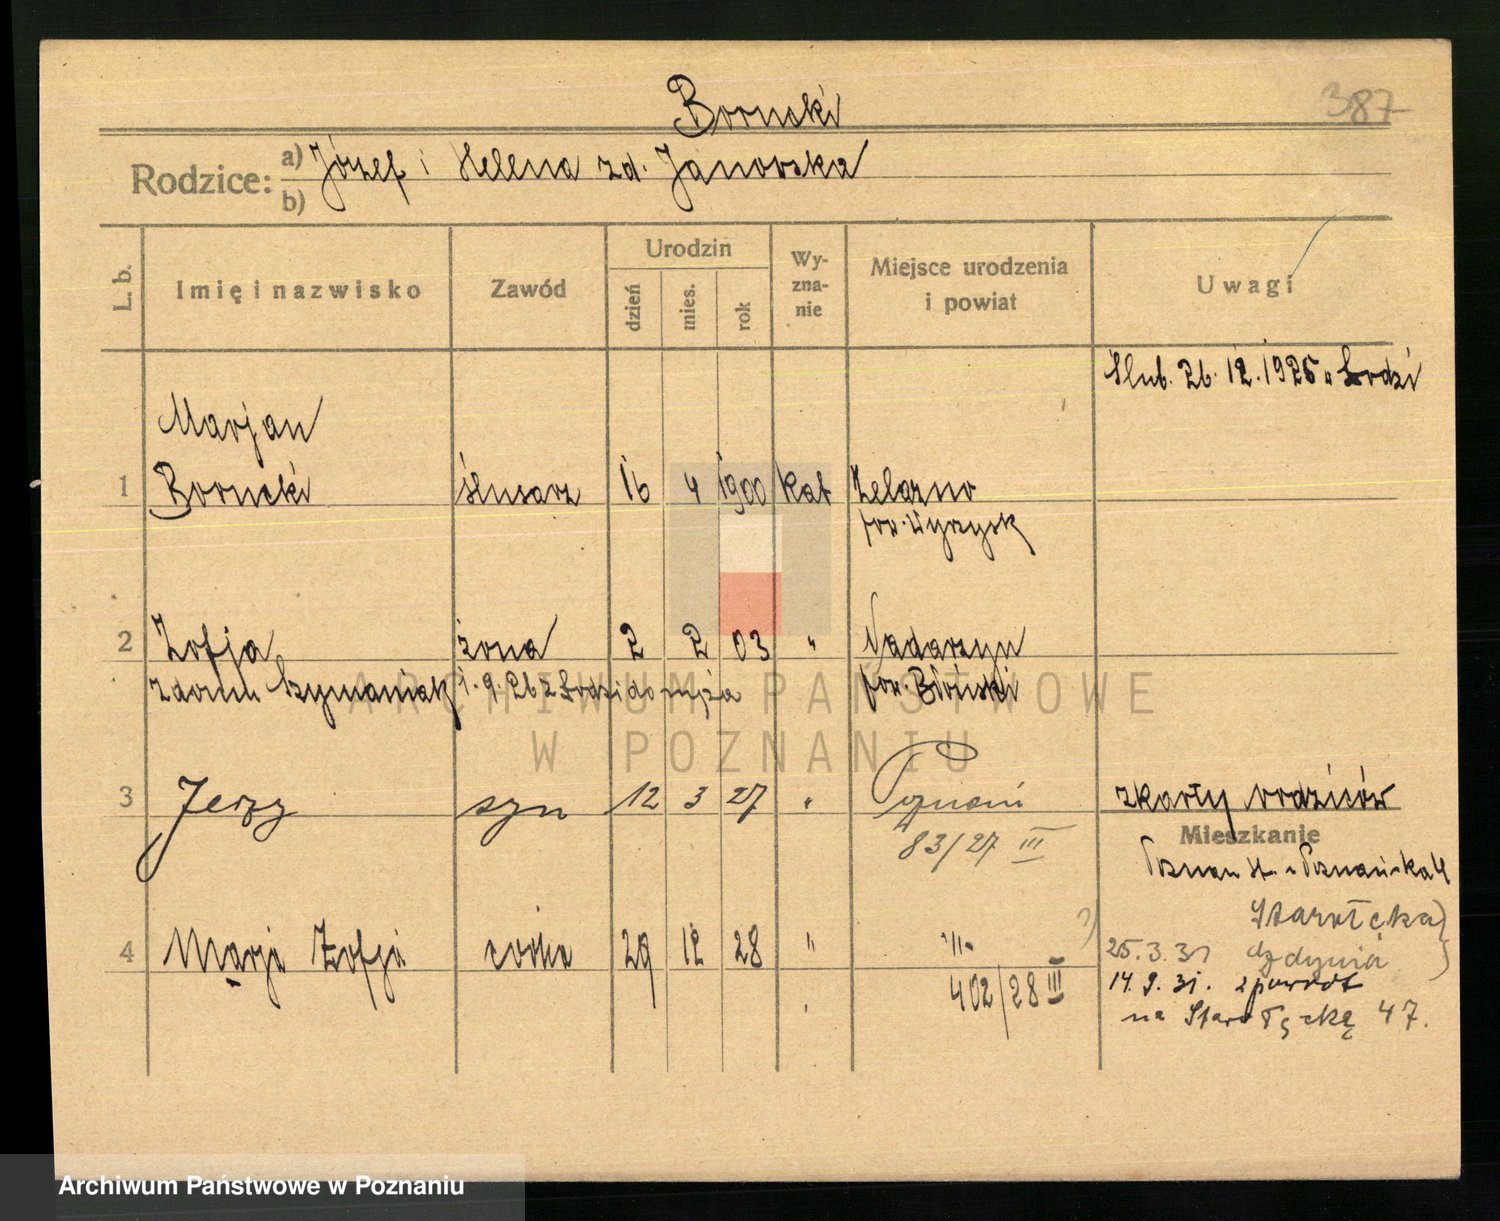 387
Borncki
Rodzice: a) Józef i Helena zd. Janowska
b)
L. b. Imię i nazwisko Zawód Urodzin dzień mies. rok Wyznanie Miejsce urodzenia i powiat Uwagi
Ślub. 26. 12. 1925 w Łodzi
Marjan
1 Borncki ślusarz 16 4 1900 kat Żelazno
pow. Wyrzysk
2 Zofja żona 2 2 03 " Nadarzyn
z domu Szymaniak 1. 9. 26 z Łodzi do męża pow. Błoński
3 Jerzy syn 12 3 27 " Poznań z karty rodziców
83/27 III
Mieszkanie
Poznań Poznańska
Starołęka)
4 Marja Zofja córka 29 12 28 " -"-
402/28 III
25. 3. 31 Gdynia
14. 9. 31. z powrót
na Starołęckę 47.
ARCHIWUM PAŃSTWOWE
W POZNANIU
Archiwum Państwowe w Poznaniu